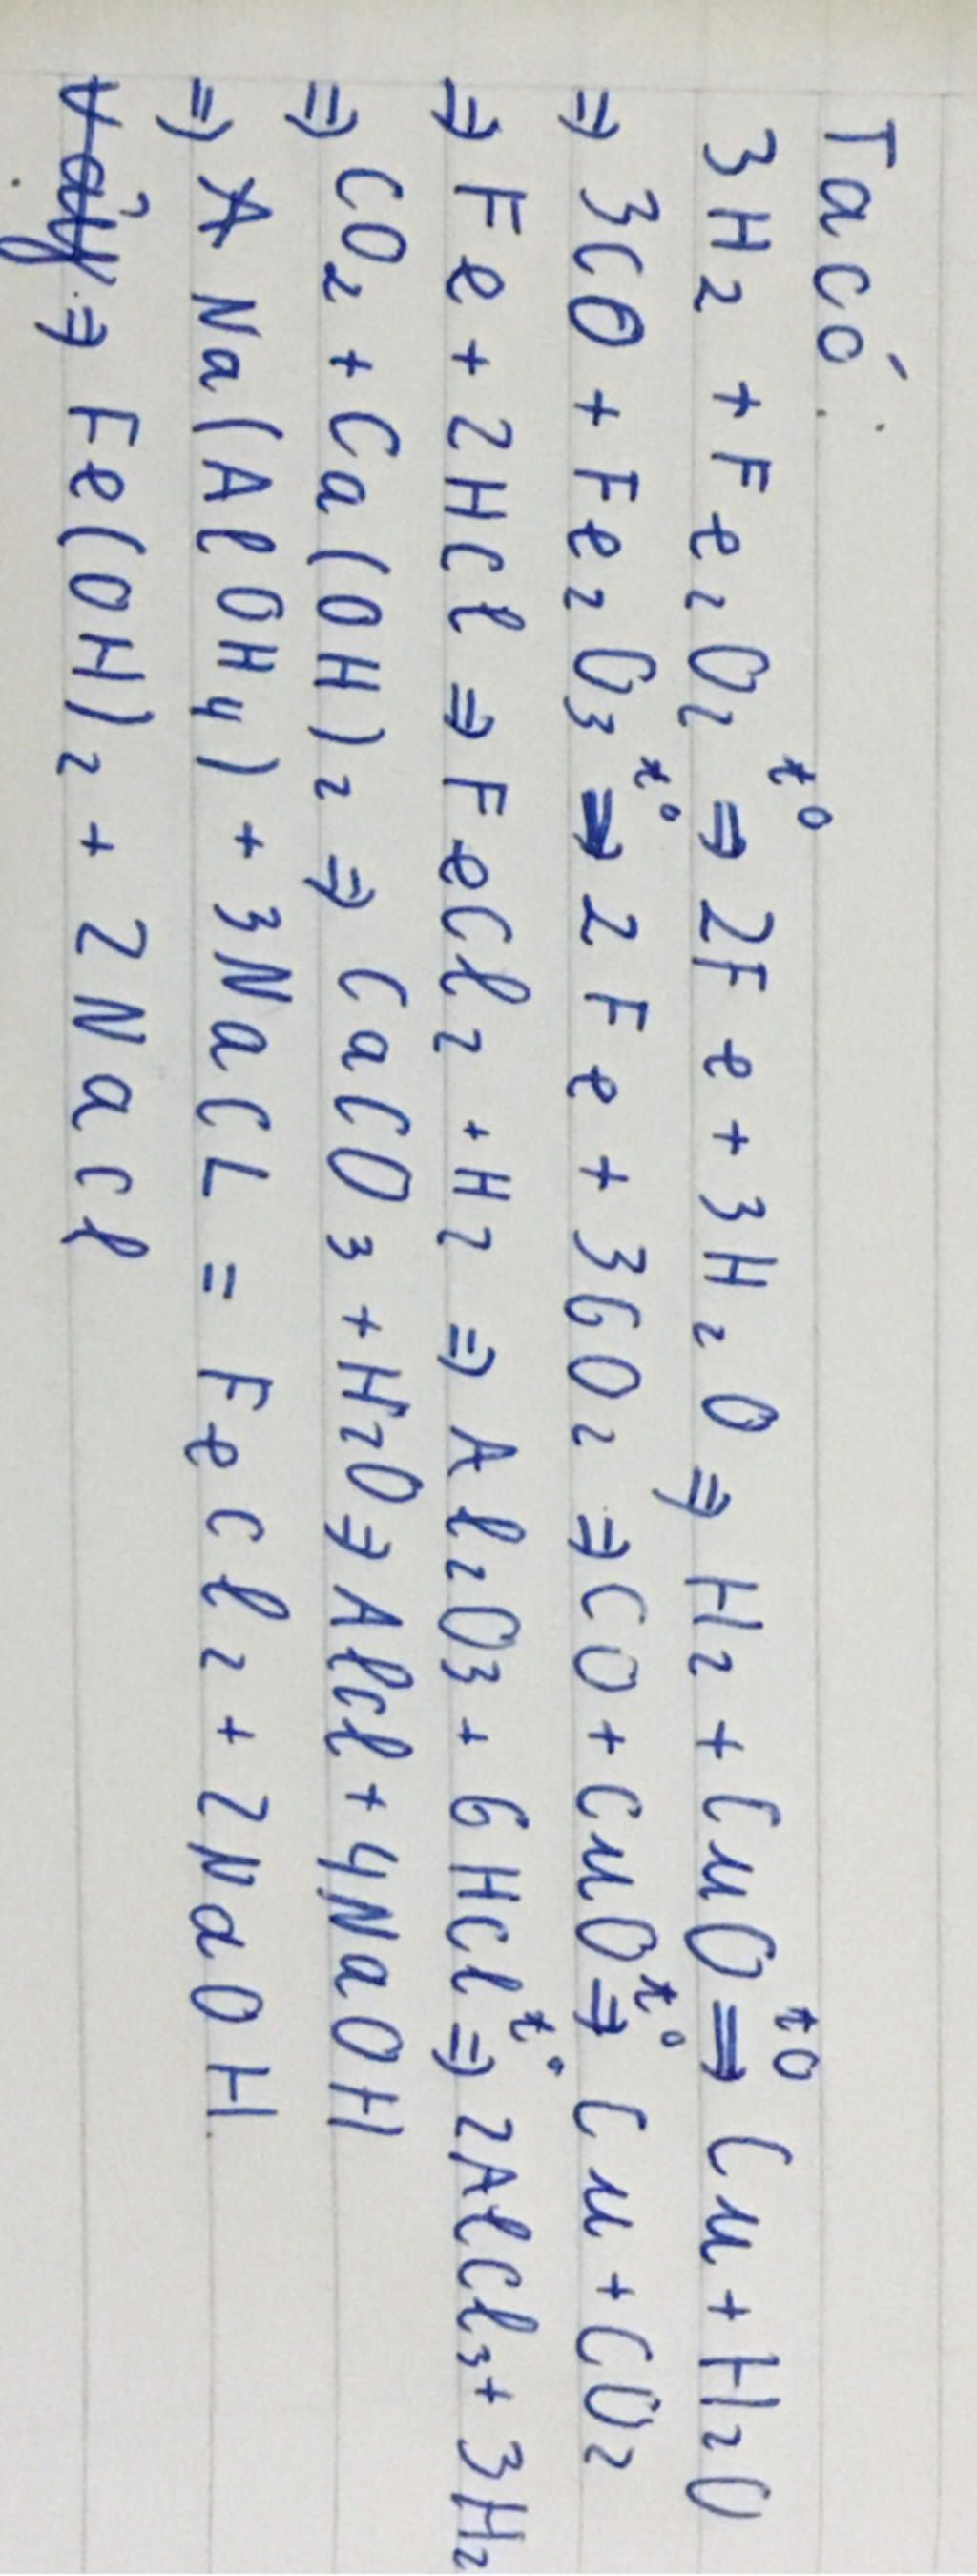 Ta có:
3H₂ + Fe₂O₂ t⁰⇒ 2Fe + 3H₂O ⇒ H₂ + CuO t⁰⇒ Cu + H₂O
⇒ 3CO + Fe₂O₃ t°⇒ 2Fe + 3CO₂ ⇒ CO + CuO t°⇒ Cu + CO₂
⇒ Fe + 2HCl ⇒ FeCl₂ + H₂ ⇒ Al₂O₃ + 6HCl t°⇒ 2AlCl₃ + 3H₂
⇒ CO₂ + Ca(OH)₂ ⇒ CaCO₃ + H₂O ⇒ Alcl + 4NaOH
⇒ Na(AlOH₄) + 3NaCL = FeCl₂ + 2NaOH
⇒ Fe(OH)₂ + 2Nacl